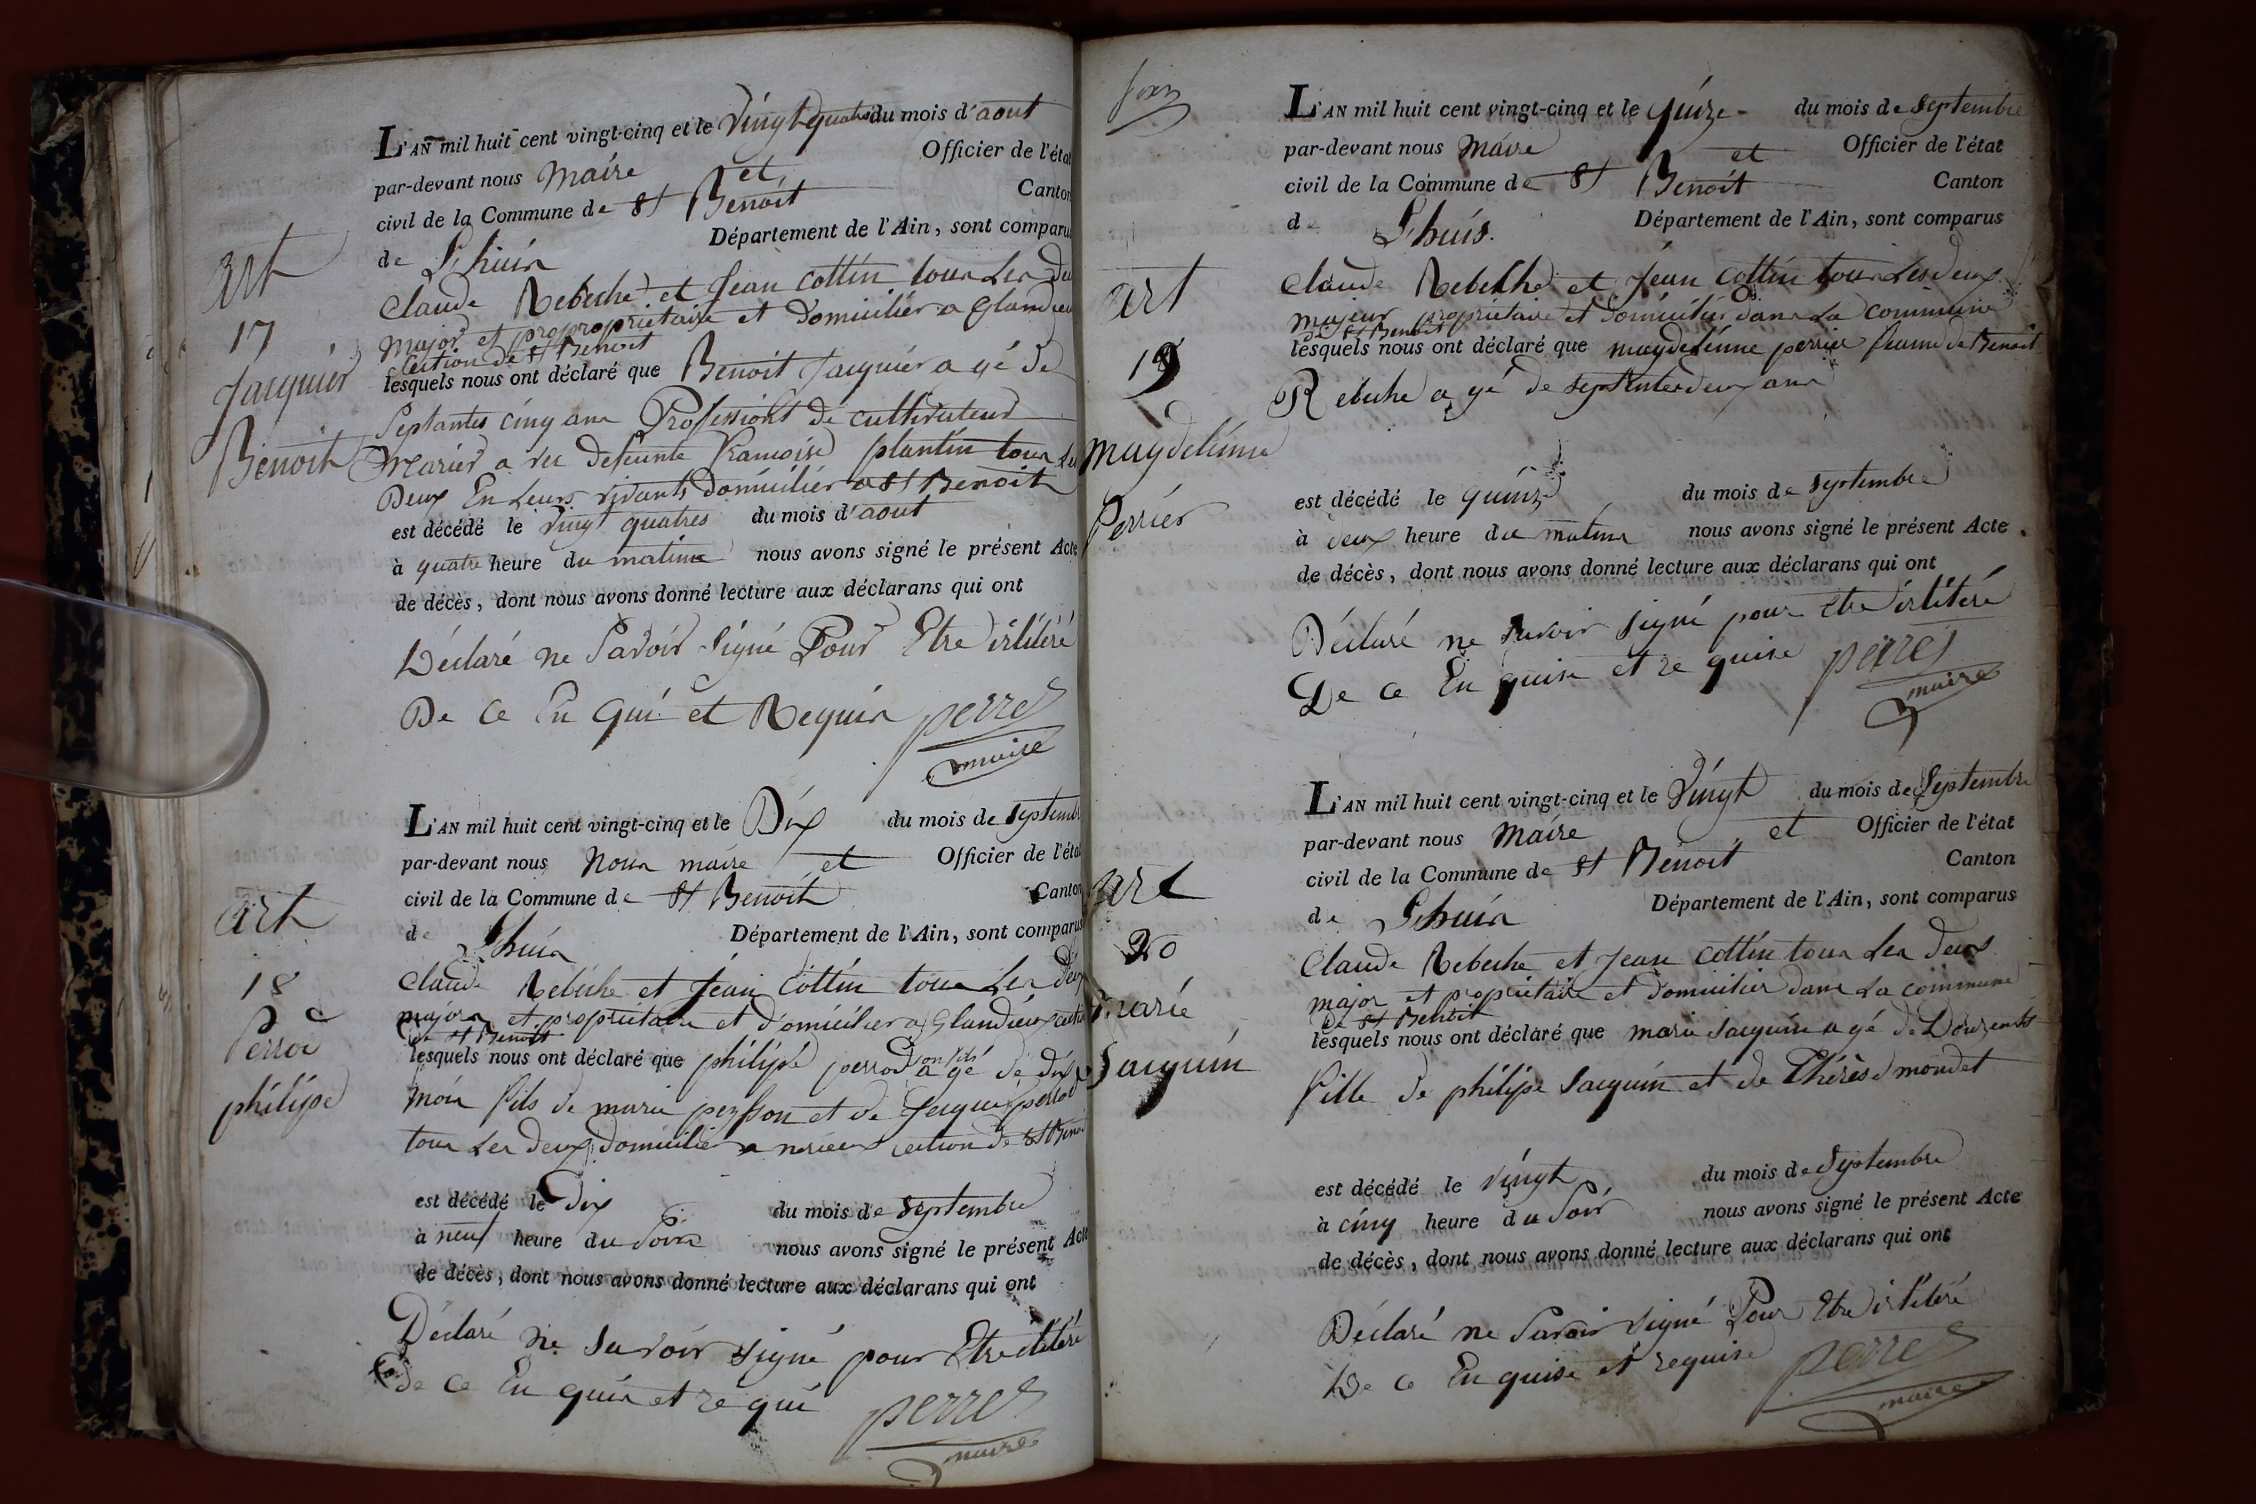 L'AN mil huit cent vingt-cinq et le vingt quatre du mois d'aout
par-devant nous Maire et Officier de l'état
civil de la Commune de St Benoit Canton
de Lhuis Département de l'Ain, sont comparus
Claude Rebeche et Jean Cottin tous Les De
Major et propropriétaire et Domicilier a Glandieu
Cection de St Benoit
lesquels nous ont déclaré que Benoit Jacquier a gé de
Septantes cinq ans Professions de cultivateur
Marier a vec defeunte Francoise plantin tous Les
Deux En Leurs vivants domicilier a St Benoit
est décédé le vingt quatres du mois d'aout
à quatre heure du matin nous avons signé le présent Acte
de décès, dont nous avons donné lecture aux déclarans qui ont
Déclaré ne Savoir Signé Pour Etre ilitéré
De Ce En Qui et Requis perret
maire
art
17
Jacquier
Benoit
L'AN mil huit cent vingt-cinq et le Dix du mois de Septembre
par-devant nous Nous maire et Officier de l'état
civil de la Commune de St Benoit Canton
de Lhuis Département de l'Ain, sont comparus
Claude Rebeche et Jean Cottin tous Les Deux
major et propriétaire et domicilier a Glandieux cection
de St Benoit
lesquels nous ont déclaré que philipe perrod a gé de dix
mois fils de marie peysson et de Jacques perrod
tous Les deux domicilier a cection de St Benoit
est décédé le Dix du mois de Septembre
à neuf heure du Soir nous avons signé le présent Acte
de décès, dont nous avons donné lecture aux déclarans qui ont
Déclaré ne Savoir signé pour Etre ilitéré
De Ce En quis et re qui perret
maire
art
18
Perrod
philipe
L'AN mil huit cent vingt-cinq et le quinze du mois de Septembre
par-devant nous Maire et Officier de l'état
civil de la Commune de St Benoit Canton
d Lhuis. Département de l'Ain, sont comparus
Claude Rebeche et Jean Cottin tous Les deux
majeur propriétaire et domicilier dans La commune
de St Benoit
lesquels nous ont déclaré que maydeleinne perrier feame de Benoit
Rebeche a gé de septentes deux ans
est décédé le quinze du mois de Septembre
à deux heure du matin nous avons signé le présent Acte
de décès, dont nous avons donné lecture aux déclarans qui ont
Déclaré ne Savoir signé pour etre ilitéré
De Ce En quise et re quise perret
maire
art
19
maydeleinne
perrier
L'AN mil huit cent vingt-cinq et le Vingt du mois de Septembre
par-devant nous Maire et Officier de l'état
civil de la Commune de St Benoit Canton
de Lhuis Département de l'Ain, sont comparus
Claude Rebeche et Jean Cottin tous Les deux
major et propriétaire et domicilier dans La commune
de St Benoit
lesquels nous ont déclaré que marie Jacquin a gé de
fille de philipe Jacquin et de Thérèse mondet
est décédé le vingt du mois de Septembre
à cinq heure du Soir nous avons signé le présent Acte
de décès, dont nous avons donné lecture aux déclarans qui ont
Déclaré ne Savoir signé Pour Etre ilitéré
De Ce En quise et requise perret
maire
art
20
marie
Jacquin